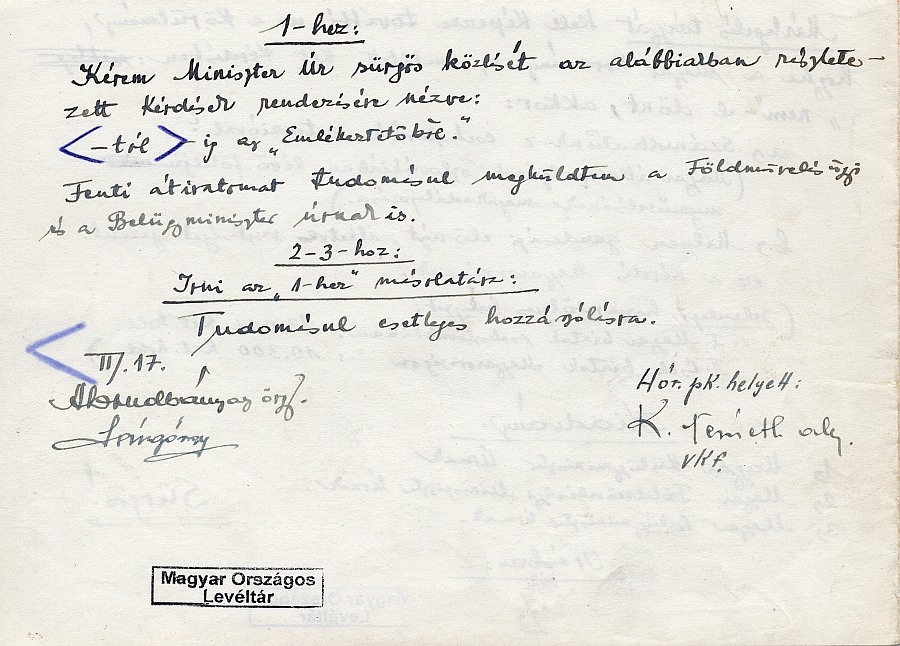 1-hez:
Kérem Miniszter Úr sürgős közlését az alábbiakban részlete-
zett kérdések rendezésére nézve:
<-tól>-ig az „Emlékeztetőből."
Fenti átiratomat tudomásul megküldtem a Földművelésügyi
és a Belügyminiszter úrnak is.
2-3-hoz:
Irni az „1-hez" másolatán:
Tudomásul esetleges hozzászólásra.
II/17.
őrgy.
Hőr. pk. helyett:
K. Németh
vkf.
Magyar Országos
Levéltár